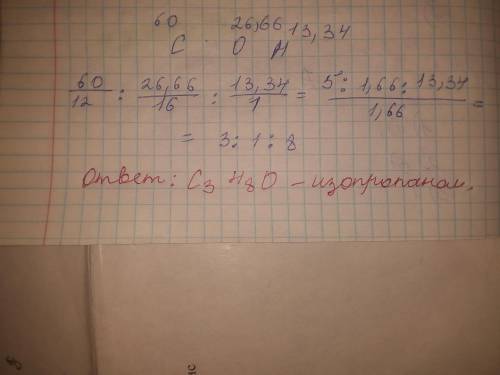 60 26,66 13,34
C O H
60/12 : 26,66/16 : 13,34/1 = 5 : 1,66 : 13,34/1,66 =
= 3 : 1 : 8
Ответ: C3 H8O - изопропанол.